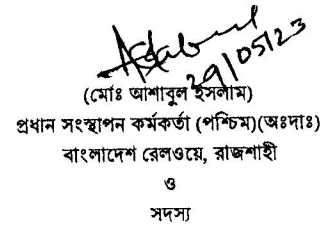 29/05/23
(মোঃ আশাবুল ইসলাম)
প্রধান সংস্থাপন কর্মকর্তা (পশ্চিম)(অঃদাঃ)
বাংলাদেশ রেলওয়ে, রাজশাহী
ও
সদস্য